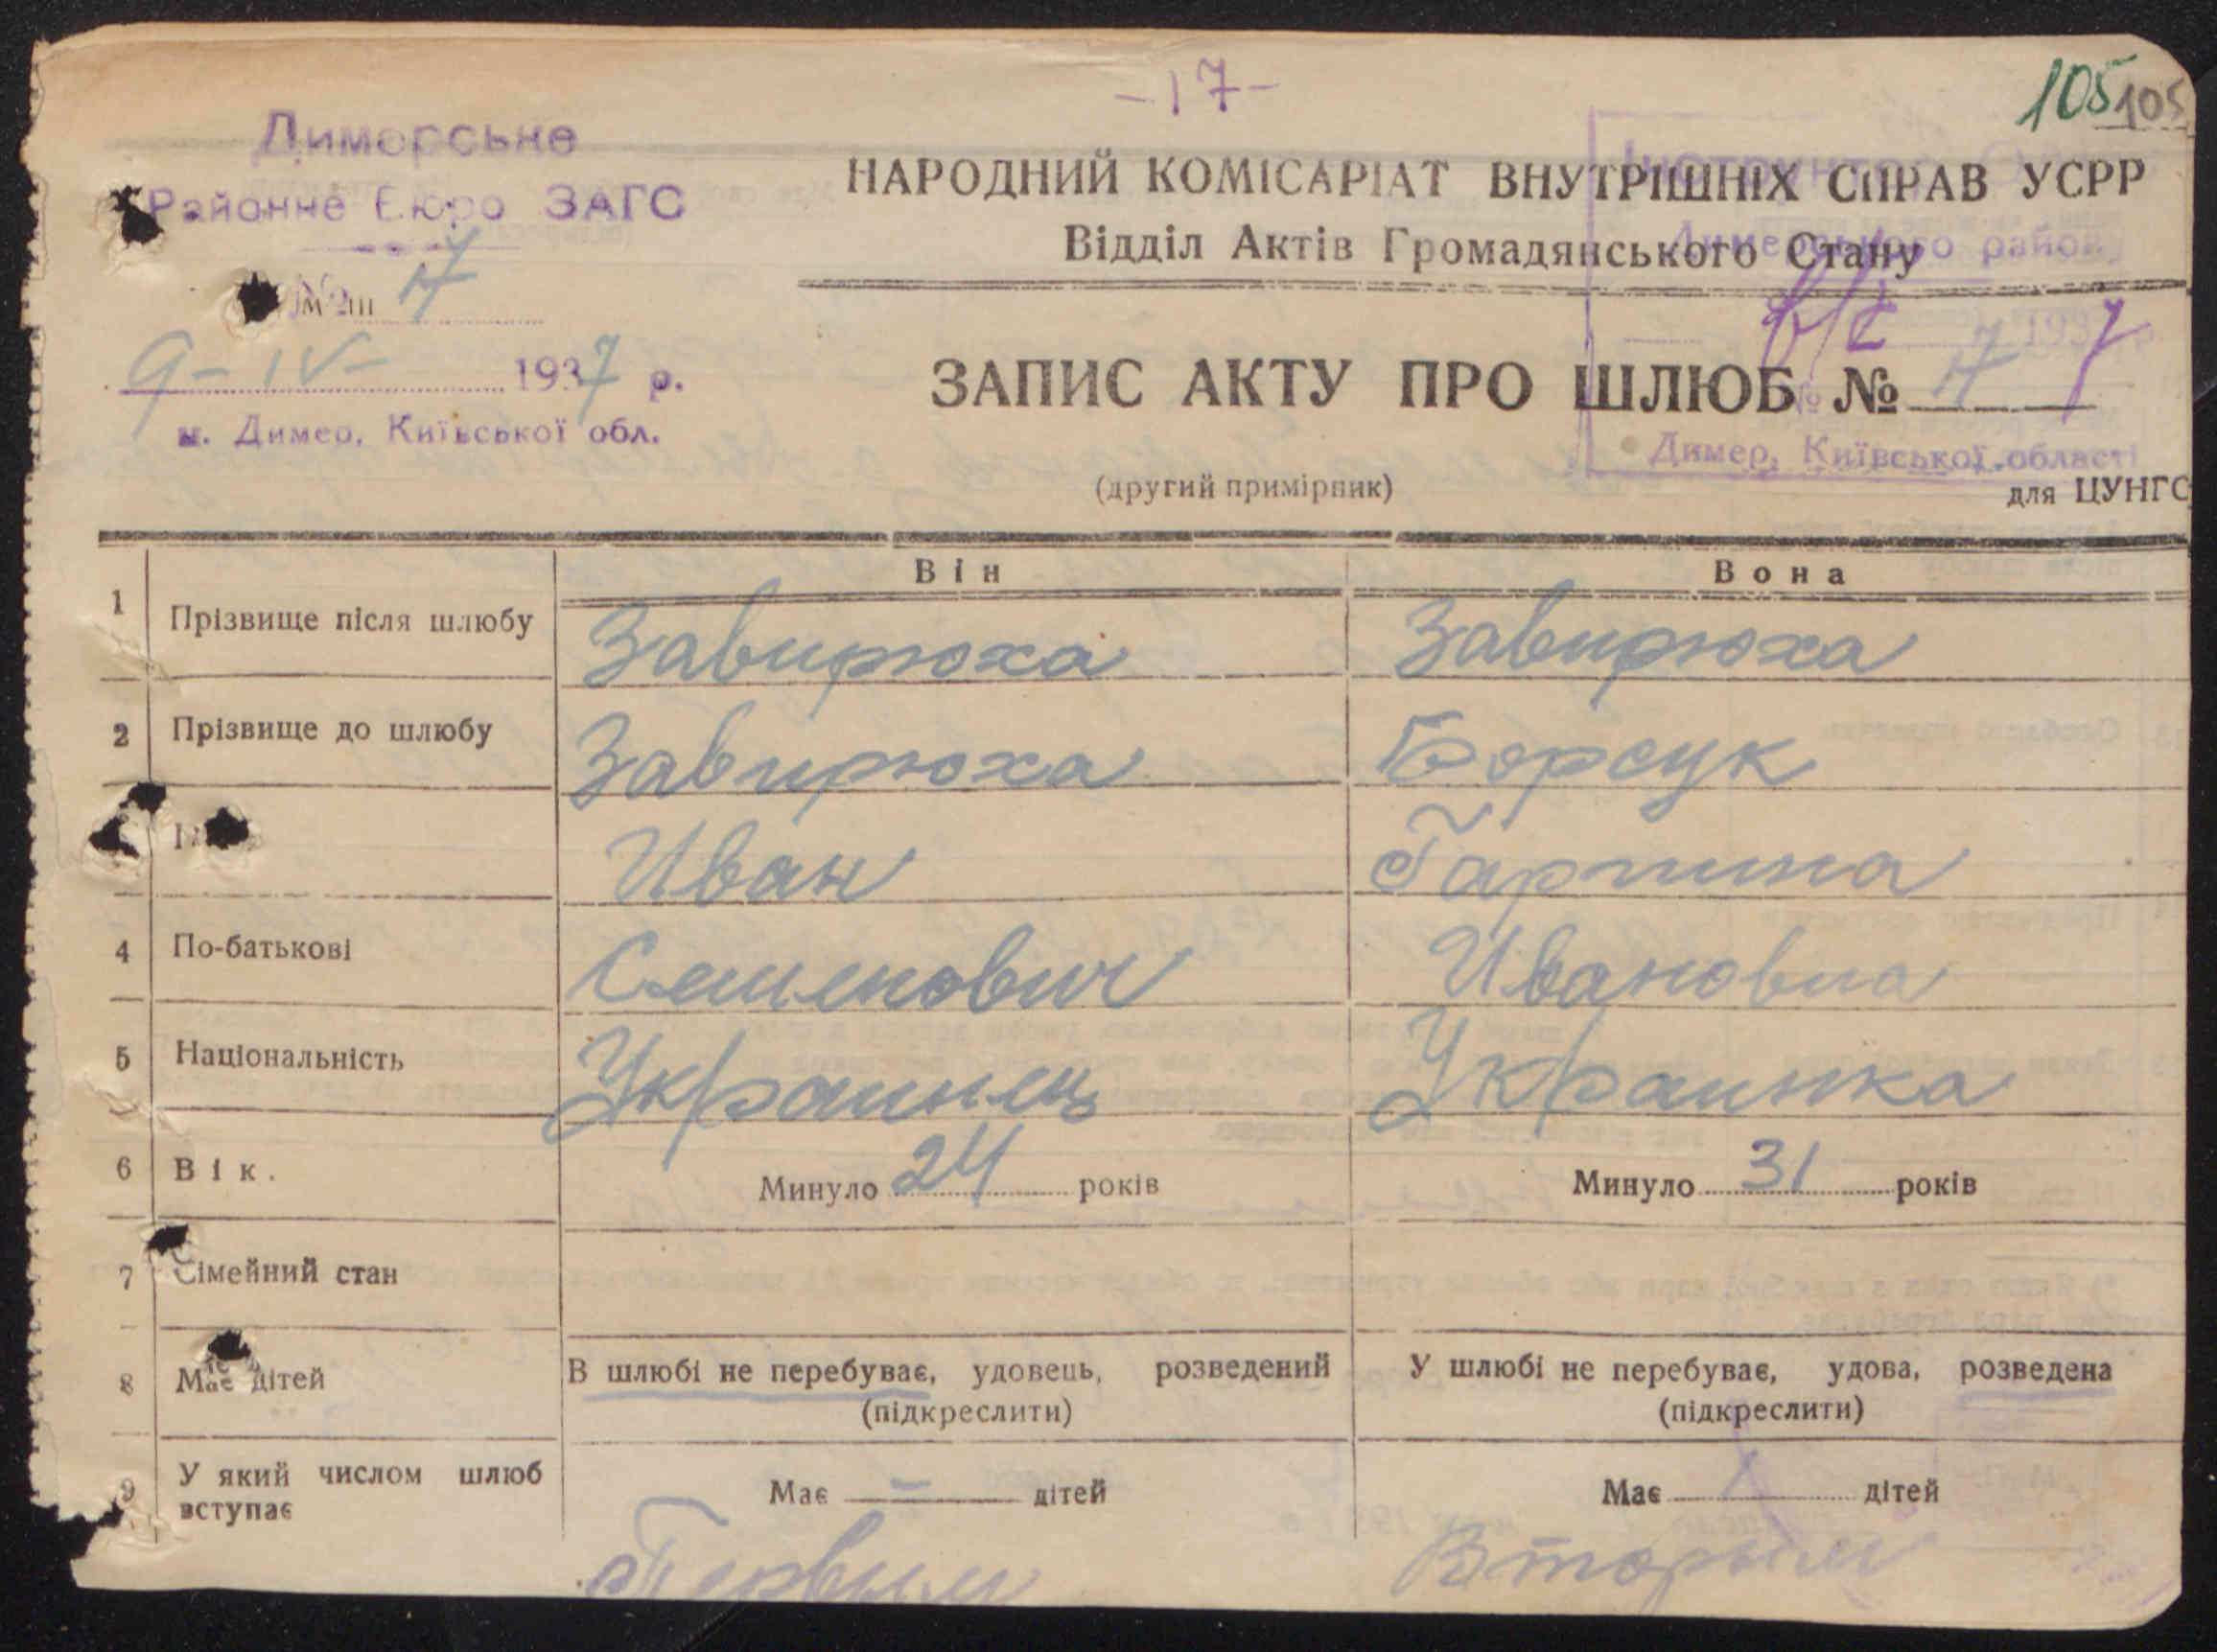 -17-
105 105
Димерське
Районне Бюро ЗАГС
№ 17
9-IV- 1937 р.
м. Димер, Київської обл.
НАРОДНИЙ КОМІСАРІАТ ВНУТРІШНІХ СПРАВ УСРР
Відділ Актів Громадянського Стану
Димерського району
17 1937
ЗАПИС АКТУ ПРО ШЛЮБ № 17
Димер, Київської області
(другий примірник)
для ЦУНГО
Він Вона
1 Прізвище після шлюбу Завирюха Завирюха
2 Прізвище до шлюбу Завирюха Борсук
Иван Гарпина
4 По-батькові Семенович Ивановна
5 Національність Украинец Украинка
6 Вік. Минуло 24 років Минуло 31 років
7 Сімейний стан
8 Має дітей В шлюбі не перебуває, удовець, розведений У шлюбі не перебуває, удова, розведена
(підкреслити) (підкреслити)
9 У який числом шлюб вступає Має — дітей Має дітей
Первым Вторым